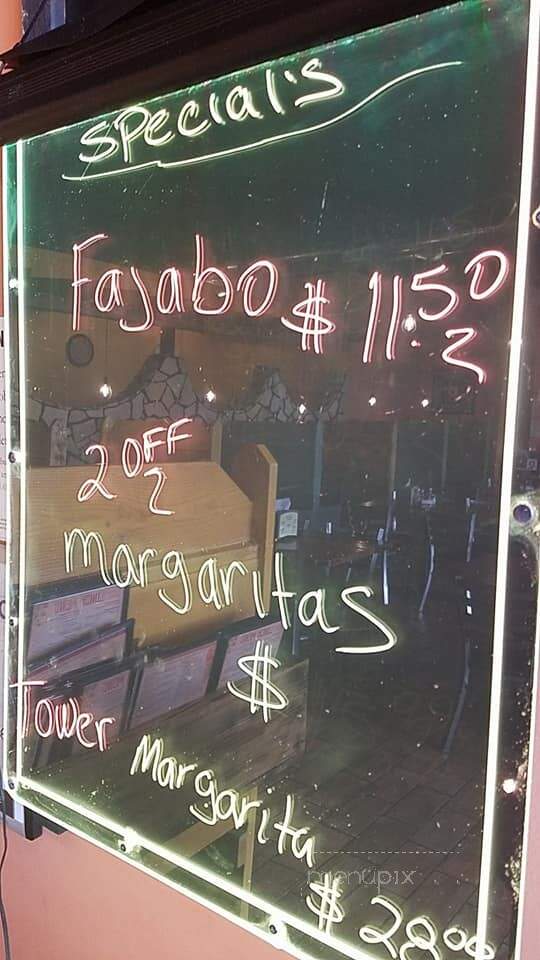 Special's
Fajabo $ 11.50
2 OFF
margaritas
$
Tower Margarita
$ 28.00
menupix